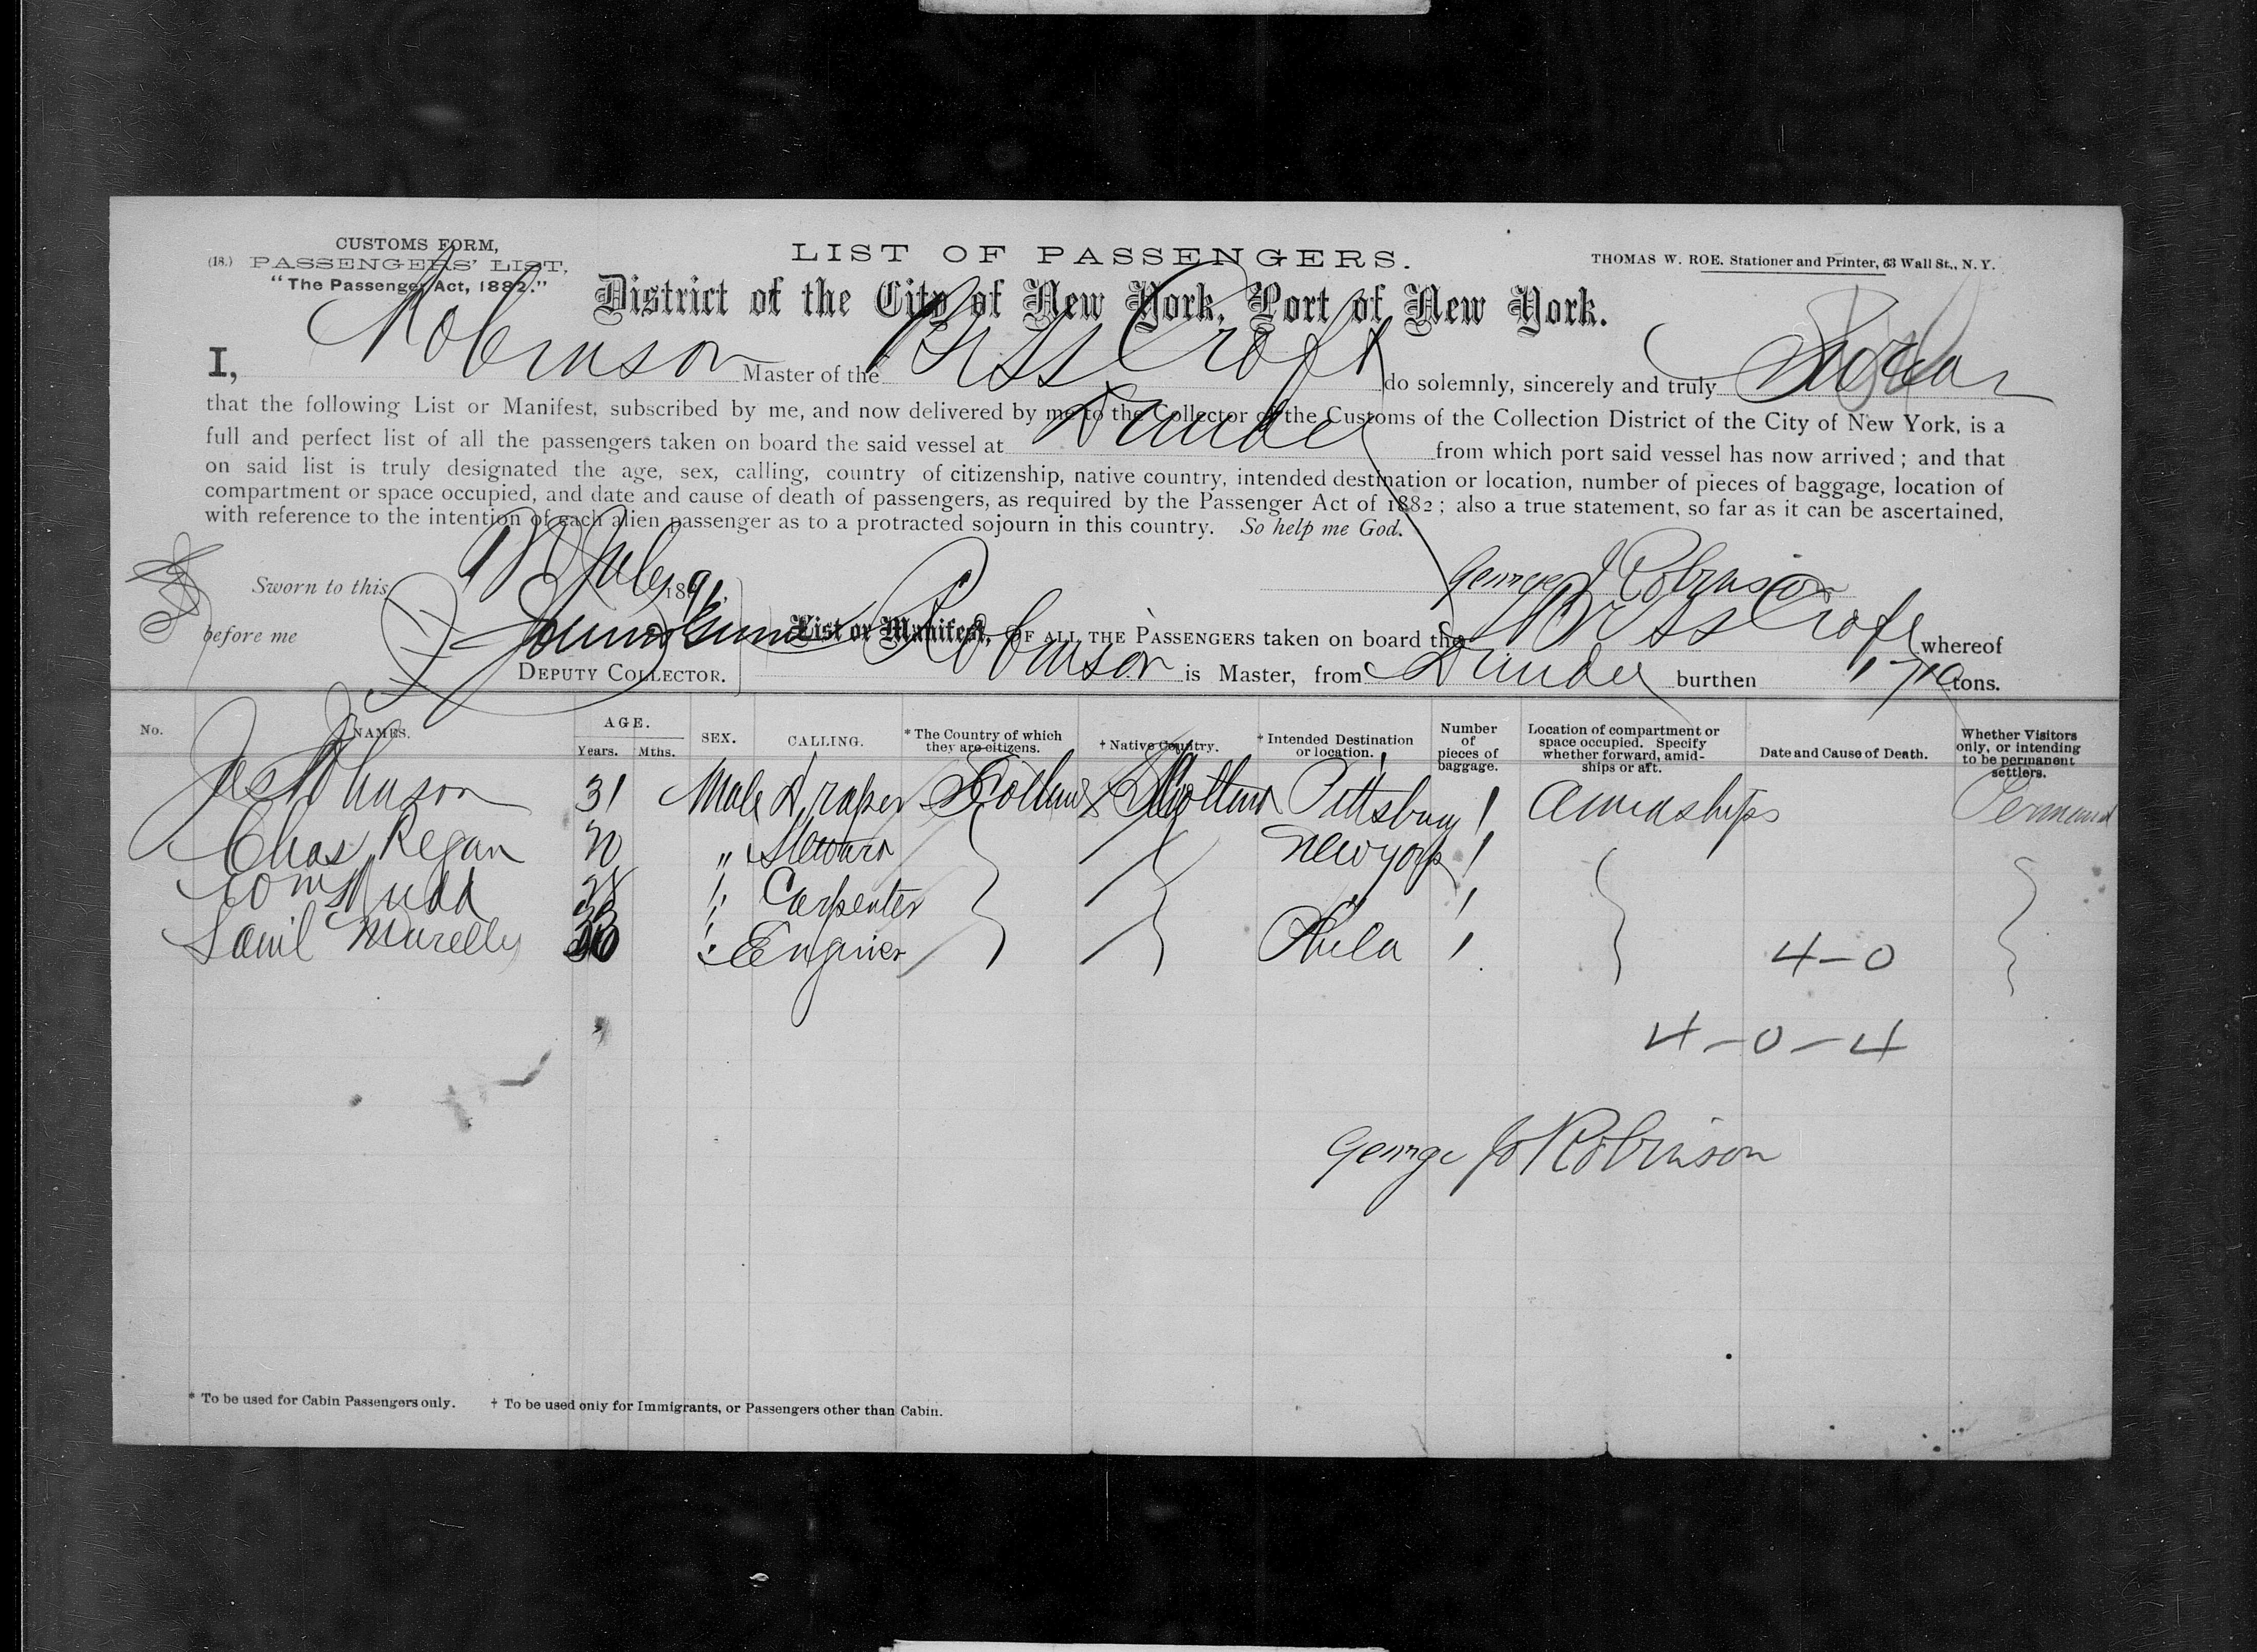 CUSTOMS FORM,
(18.) PASSENGERS' LIST,
"The Passenger Act, 1882."
LIST OF PASSENGERS.
THOMAS W. ROE. Stationer and Printer, 63 Wall St., N. Y.
District of the City of New York, Port of New York.
I, Robinson Master of the Croft do solemnly, sincerely and truly Swear
that the following List or Manifest, subscribed by me, and now delivered by me to the Collector of the Customs of the Collection District of the City of New York, is a
full and perfect list of all the passengers taken on board the said vessel at Dundee from which port said vessel has now arrived; and that
on said list is truly designated the age, sex, calling, country of citizenship, native country, intended destination or location, number of pieces of baggage, location of
compartment or space occupied, and date and cause of death of passengers, as required by the Passenger Act of 1882; also a true statement, so far as it can be ascertained,
with reference to the intention of each alien passenger as to a protracted sojourn in this country. So help me God.
George J Robinson
Sworn to this 1891,
before me
DEPUTY COLLECTOR.
List or Manifest, OF ALL THE PASSENGERS taken on board the SS Croft whereof
Robinson is Master, from Dundee burthen tons.
No. NAMES. AGE. Years. Mths. SEX. CALLING. * The Country of which they are citizens. † Native Country. † Intended Destination or location. Number of pieces of baggage. Location of compartment or space occupied. Specify whether forward, amidships or aft. Date and Cause of Death. Whether Visitors only, or intending to be permanent settlers.
Johnson 31 Male Draper Scotland Scotland Pittsburg 1 Amidships
Chas Regan " Steward New York 1
Carpenter " 1
Engineer Phila 1
4-0
4-0-4
George J Robinson
* To be used for Cabin Passengers only. † To be used only for Immigrants, or Passengers other than Cabin.